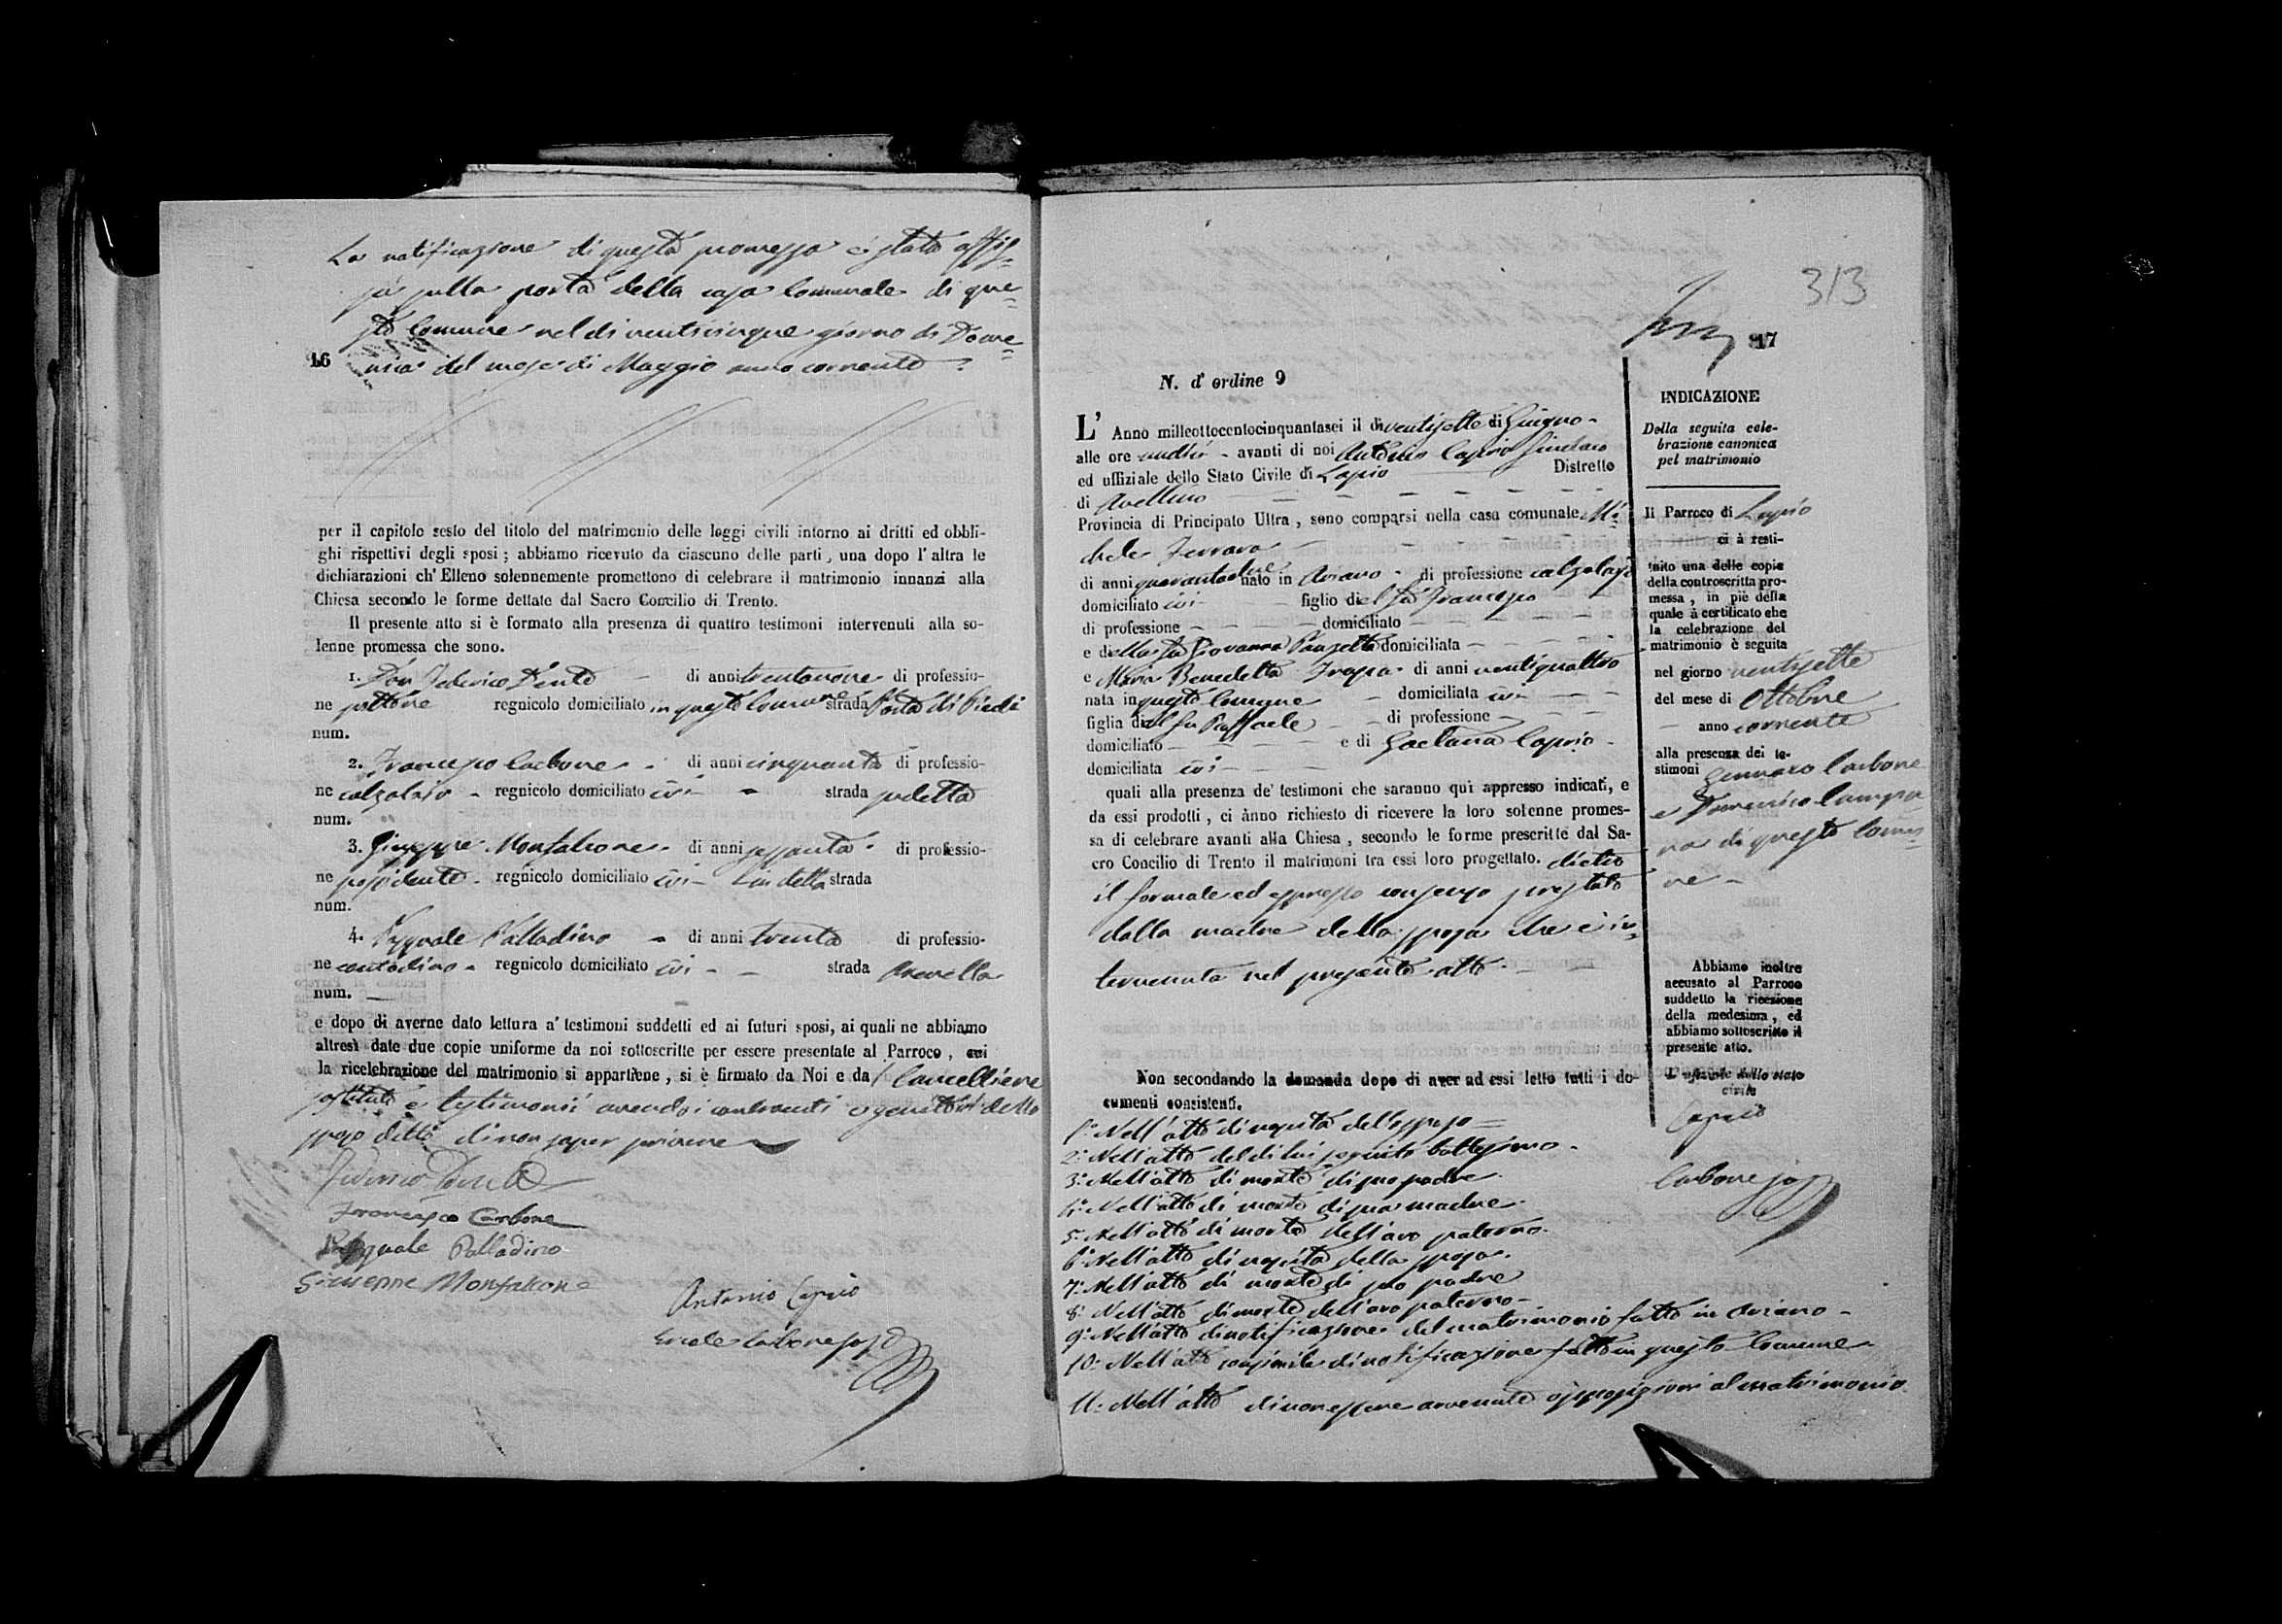 La notificazione di questa promessa è stata affis=
sa sulla porta della casa Comunale di que=
sto Comune nel dì venticinque giorno di Dome=
16
nica del mese di Maggio anno corrente
per il capitolo sesto del titolo del matrimonio delle leggi civili intorno ai dritti ed obbli-
ghi rispettivi degli sposi ; abbiamo ricevuto da ciascuno delle parti , una dopo l' altra le
dichiarazioni ch' Elleno solennemente promettono di celebrare il matrimonio innanzi alla
Chiesa secondo le forme dettate dal Sacro Concilio di Trento.
Il presente atto si è formato alla presenza di quattro testimoni intervenuti alla so-
lenne promessa che sono.
1. Don Federico Dente di anni trentanove di professio-
ne regnicolo domiciliato in questo Comune strada Porta di Piedi
num.
2. Francesco Carbone di anni cinquanta di professio-
ne calzolaio - regnicolo domiciliato ivi - strada
num.
3. Giuseppe Monfalcone - di anni sessanta - di professio-
ne possidente - regnicolo domiciliato ivi - strada
num.
4. Pasquale Palladino - di anni trenta di professio-
ne contadino - regnicolo domiciliato ivi - - strada
num. —
e dopo di averne dato lettura a' testimoni suddetti ed ai futuri sposi, ai quali ne abbiamo
altresì date due copie uniforme da noi sottoscritte per essere presentate al Parroco , cui
la ricelebrazione del matrimonio si appartiene , si è firmato da Noi e da Cancelliere
sostituto e testimonii avendo i contraenti e genitori dello
sposo detto di non saper scrivere
Federico Dente
Francesco Carbone
Pasquale Palladino
Giuseppe Monfalcone
Antonio Caprio
Ercole Carbone
313
17
N. d' ordine 9
L' Anno milleottocentocinquantasei il dì ventisette di Giugno -
alle ore undici - avanti di noi Antonio Caprio Sindaco
ed uffiziale dello Stato Civile di Lapio Distretto
di Avellino
Provincia di Principato Ultra , sono comparsi nella casa comunale Mi=
chele Ferraro
di anni quarantadue nato in Ariano - di professione calzolajo
domiciliato ivi figlio del fu Francesco
di professione domiciliato
e della fu Giovanna Panzetta domiciliata
e Maria Benedetta Tropa di anni ventiquattro
nata in questo Comune - domiciliata ivi
figlia del fu Raffaele di professione
domiciliato e di Gaetana Caprio
domiciliata ivi
quali alla presenza de' testimoni che saranno qui appresso indicati, e
da essi prodotti , ci ànno richiesto di ricevere la loro solenne promes-
sa di celebrare avanti alla Chiesa , secondo le forme prescritte dal Sa-
cro Concilio di Trento il matrimoni tra essi loro progettato. dietro
il formale ed espresso consenso prestato
dalla madre della sposa che è in=
tervenuta nel presente atto
Non secondando la domanda dopo di aver ad essi letto tutti i do-
cumenti consistenti.
1.° Nell'atto di nascita dello sposo =
2.° Nell'atto del di lui seguito battesimo -
3.° Nell'atto di morte di suo padre
4.° Nell'atto di morte di sua madre
5.° Nell'atto di morte dell'avo paterno
6.° Nell'atto di nascita della sposa
7.° Nell'atto di morte di suo padre
8.° Nell'atto di morte dell'avo paterno -
9.° Nell'atto di notificazione del matrimonio fatto in Ariano -
10.° Nell'atto consimile di notificazione fatto in questo Comune
11.° Nell'atto di non essere avvenute opposizioni al matrimonio
INDICAZIONE
Della seguita cele-
brazione canonica
pel matrimonio
Il Parroco di Lapio
ci à resti-
tuito una delle copie
della controscritta pro-
messa , in piè della
quale à certificato che
la celebrazione del
matrimonio è seguita
nel giorno ventisette
del mese di Ottobre
anno corrente
alla presenza dei te-
stimoni Gennaro Carbone
e Domenico Campa
na di questo Comu=
ne -
Abbiamo inoltre
accusato al Parroco
suddetto la ricezione
della medesima , ed
abbiamo sottoscritto il
presente atto.
L' ufiziale dello stato
civile
Caprio
Carbone